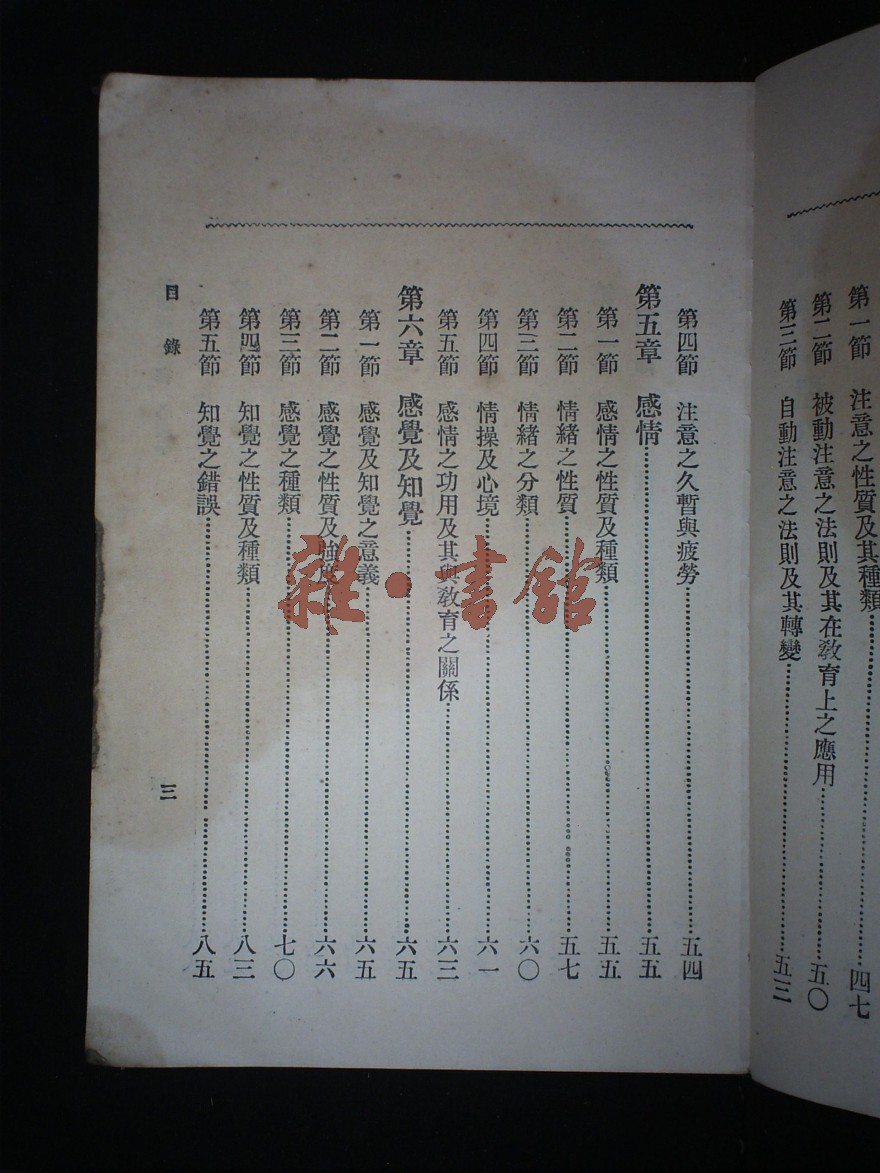 第一節 注意之性質及其種類……四七
第二節 被動注意之法則及其在教育上之應用……五〇
第三節 自動注意之法則及其轉變……五三
第四節 注意之久暫與疲勞……五四
第五章 感情……五五
第一節 感情之性質及種類……五五
第二節 情緒之性質……五七
第三節 情緒之分類……六〇
第四節 情操及心境……六一
第五節 感情之功用及其與教育之關係……六三
第六章 感覺及知覺……六五
第一節 感覺及知覺之意義……六五
第二節 感覺之性質及強度……六六
第三節 感覺之種類……七〇
第四節 知覺之性質及種類……八三
第五節 知覺之錯誤……八五
目錄
三
雜·書館